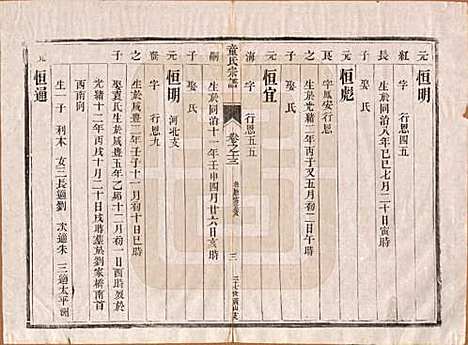 元 恒明
紅 字 行恩四五
長 生於同治八年己巳七月二十日寅時
子 娶 氏
元 恒彪
良 字鳳安行恩
之 生於光緒二年丙子又五月初二日午時
子 娶 氏
元 恒宜
海 字 行恩五五
嗣 生於同治十一年壬申四月廿六日亥時
子 娶 氏
童氏宗譜
卷之十三
三
元 恒明 河北支
發 字 行恩九
之 生於咸豐二年壬子十一月初十日巳時
子 娶袁氏生於咸豐五年乙卯十二月初一日酉時歿於
光緒十二年丙戌十月二十日戌時墓於劉家橋南首
西南向
生一子 利木 女三長適劉 次適朱 三適太平洲
元 恒通